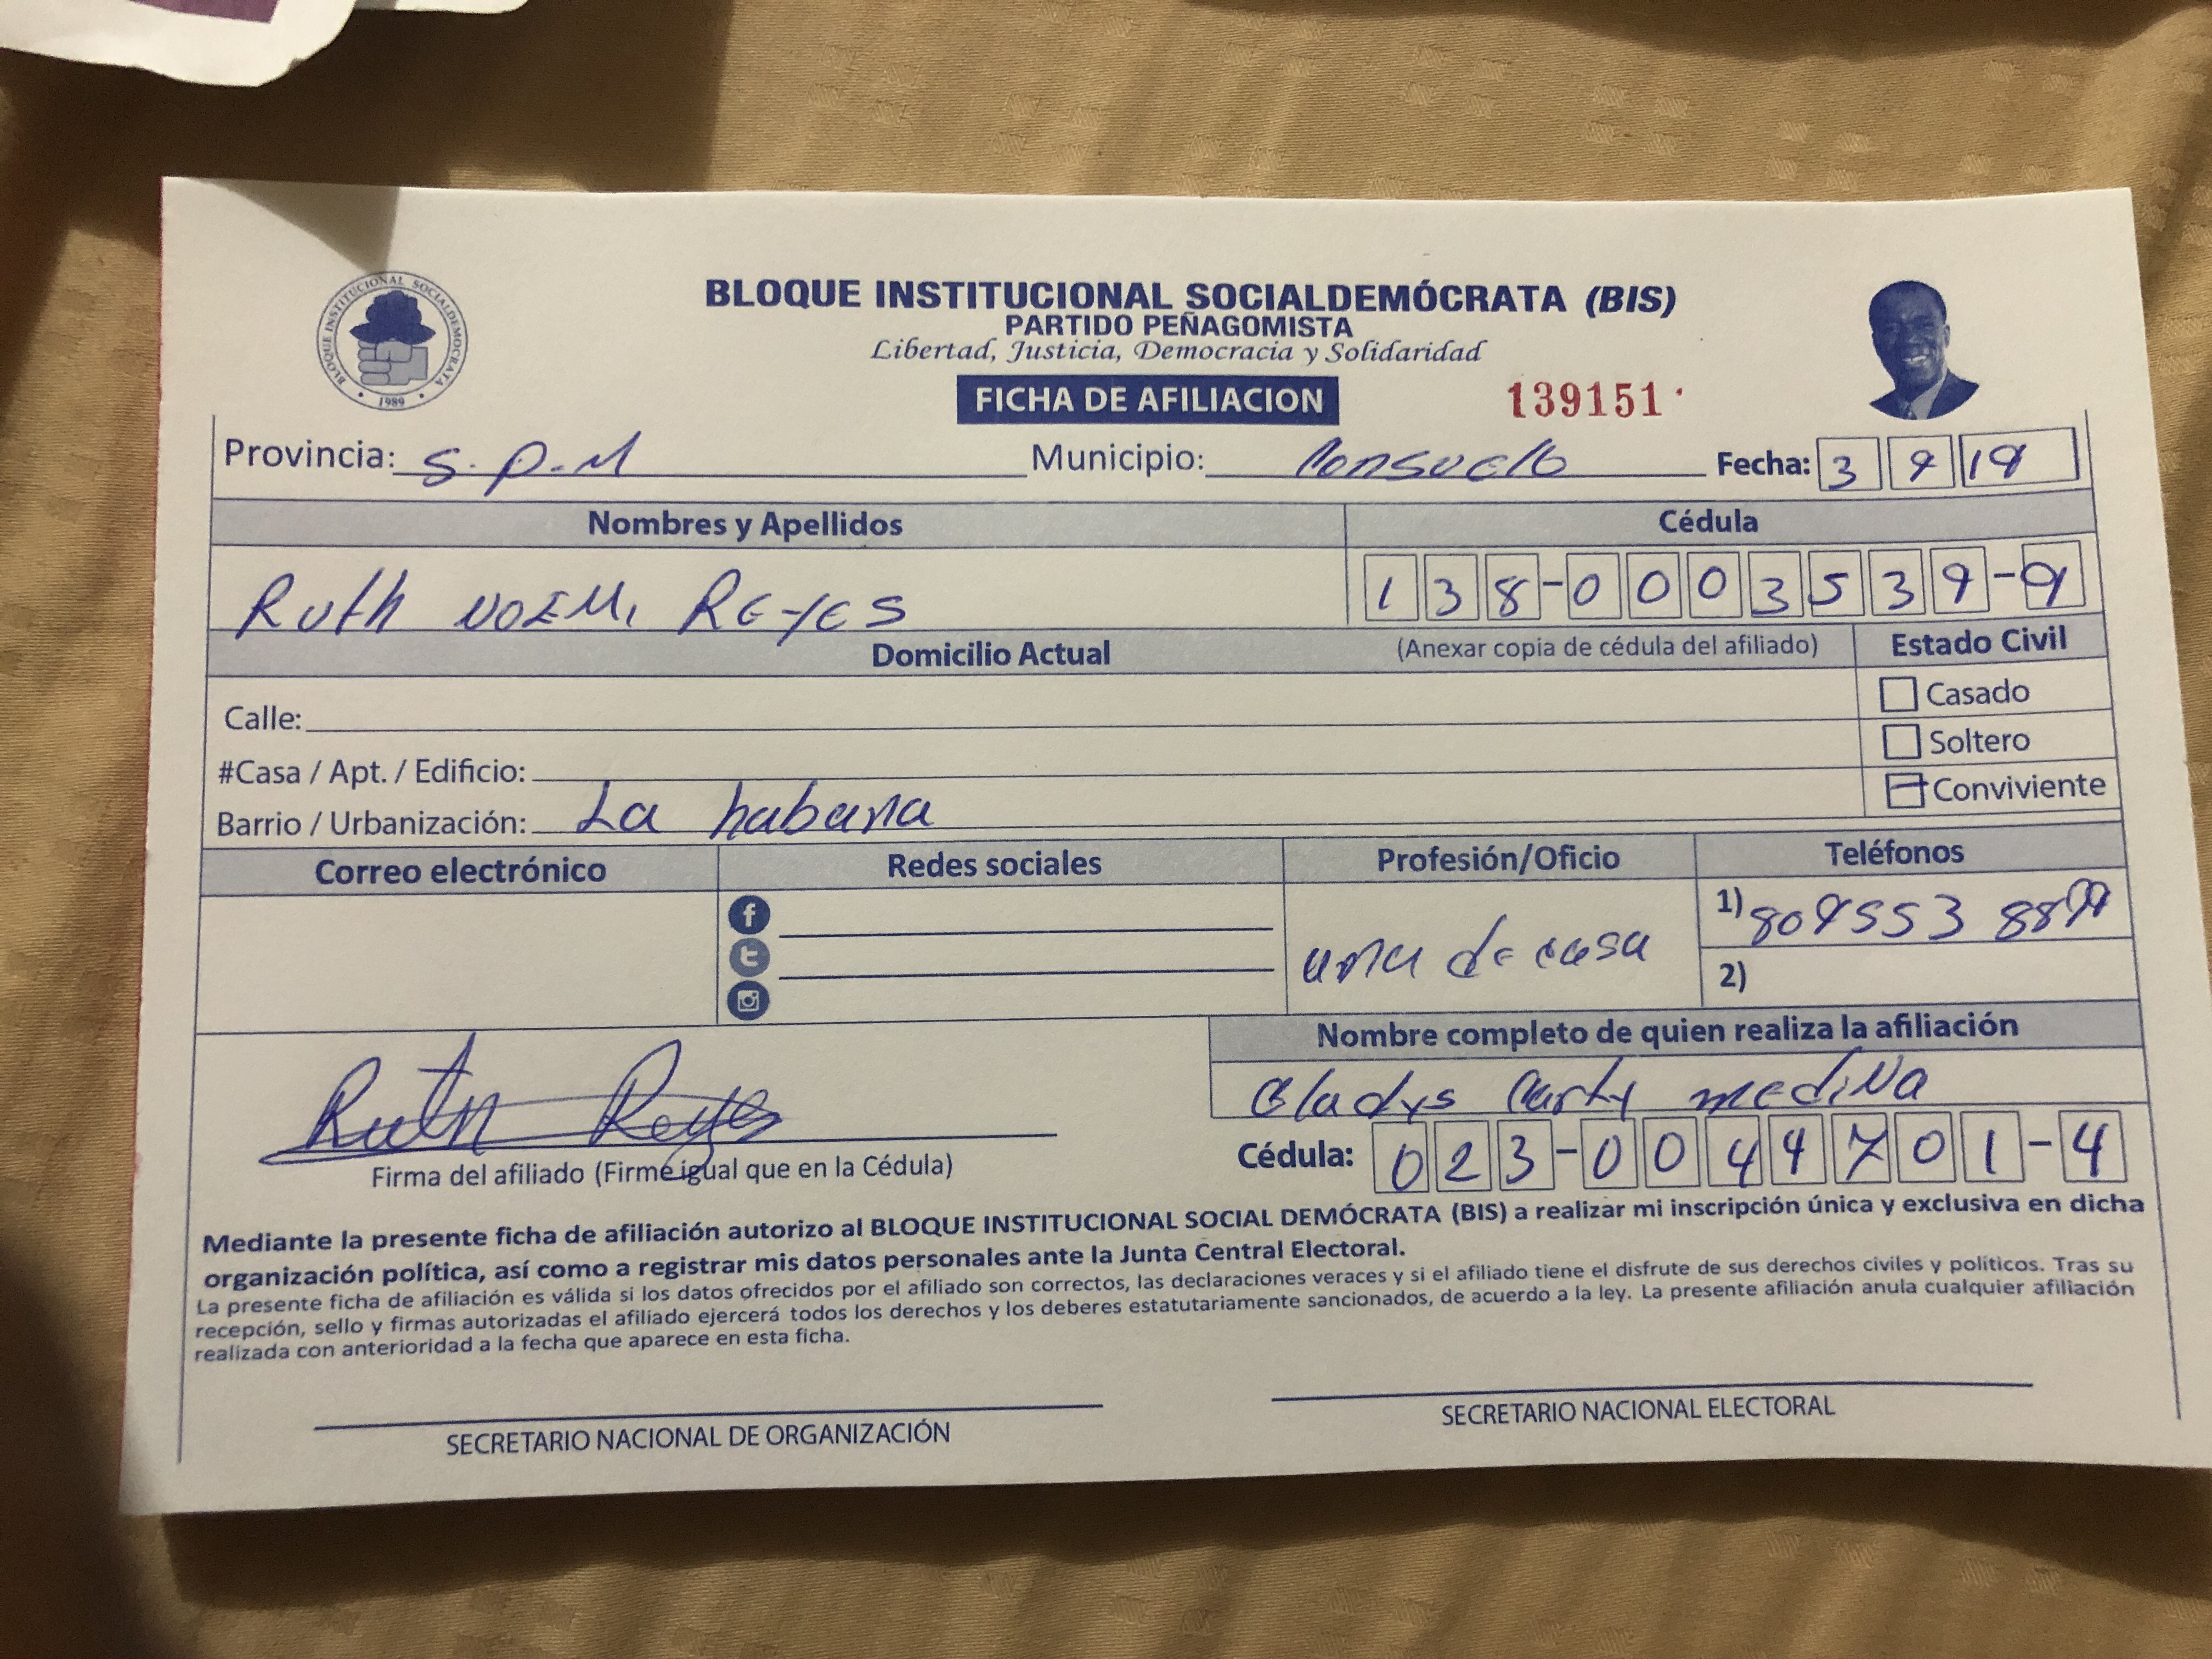 BLOQUE INSTITUCIONAL SOCIALDEMÓCRATA
1989
BLOQUE INSTITUCIONAL SOCIALDEMÓCRATA (BIS)
PARTIDO PEÑAGOMISTA
Libertad, Justicia, Democracia y Solidaridad
FICHA DE AFILIACION 139151
Provincia: S.P.M Municipio: Consuelo Fecha: 3 9 19
Nombres y Apellidos Cédula
Ruth NOEMi REYES 138-0003539-9
Domicilio Actual (Anexar copia de cédula del afiliado) Estado Civil
Casado
Calle:
Soltero
#Casa / Apt. / Edificio:
Conviviente
Barrio / Urbanización: La habana
Correo electrónico Redes sociales Profesión/Oficio Teléfonos
1) 809553 8899
ama de casa
2)
Nombre completo de quien realiza la afiliación
Ruth Reyes
Gladys Carty medina
Cédula: 023-0044701-4
Firma del afiliado (Firme igual que en la Cédula)
Mediante la presente ficha de afiliación autorizo al BLOQUE INSTITUCIONAL SOCIAL DEMÓCRATA (BIS) a realizar mi inscripción única y exclusiva en dicha
organización política, así como a registrar mis datos personales ante la Junta Central Electoral.
La presente ficha de afiliación es válida si los datos ofrecidos por el afiliado son correctos, las declaraciones veraces y si el afiliado tiene el disfrute de sus derechos civiles y políticos. Tras su
recepción, sello y firmas autorizadas el afiliado ejercerá todos los derechos y los deberes estatutariamente sancionados, de acuerdo a la ley. La presente afiliación anula cualquier afiliación
realizada con anterioridad a la fecha que aparece en esta ficha.
SECRETARIO NACIONAL DE ORGANIZACIÓN SECRETARIO NACIONAL ELECTORAL